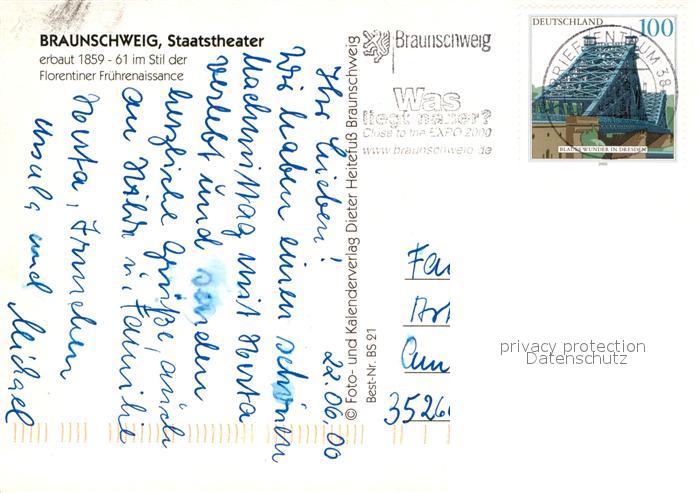 BRAUNSCHWEIG, Staatstheater
erbaut 1859 - 61 im Stil der
Florentiner Frührenaissance
22.06.00
Ihr Lieben!
Wir haben einen schönen
Nachmittag mit Herta
verlebt und senden
herzliche Grüße, auch
an Hilde u. Familie
Herta, Irmchen
Ursula und Michael
© Foto- und Kalenderverlag Dieter Heitefuß Braunschweig
Best-Nr. BS 21
Braunschweig
Was
liegt näher?
Close to the EXPO 2000
www.braunschweig.de
DEUTSCHLAND 100
BRIEFZENTRUM 38
BLAUES WUNDER IN DRESDEN
2000
Fam
3526
privacy protection
Datenschutz